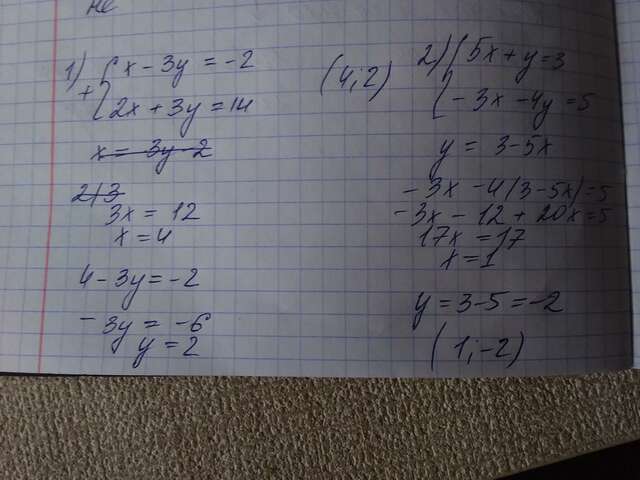 не
1) { x - 3y = -2
+ { 2x + 3y = 14
x = 3y - 2
2) 3
3x = 12
x = 4
4 - 3y = -2
- 3y = -6
y = 2
(4; 2)
2) { 5x + y = 3
{ - 3x - 4y = 5
y = 3 - 5x
- 3x - 4(3 - 5x) = 5
- 3x - 12 + 20x = 5
17x = 17
x = 1
y = 3 - 5 = -2
(1; -2)